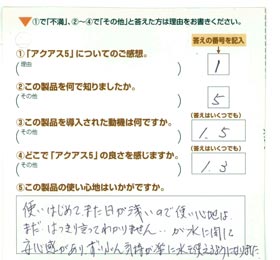 ▼①で「不満」、②~④で「その他」と答えた方は理由をお書きください。
答えの番号を記入
①「アクアス5」についてのご感想。
(理由 ) 1
②この製品を何で知りましたか。
(その他 ) 5
③この製品を導入された動機は何ですか。 (答えはいくつでも)
(その他 ) 1.5
④どこで「アクアス5」の良さを感じますか。 (答えはいくつでも)
(その他 ) 1.3
⑤この製品の使い心地はいかがですか。
使いはじめてまだ日が浅いので使い心地は
まだはっきり言ってわかりません…が水に関して
安心感がありずいぶん気持が楽に水を使えるようになりました